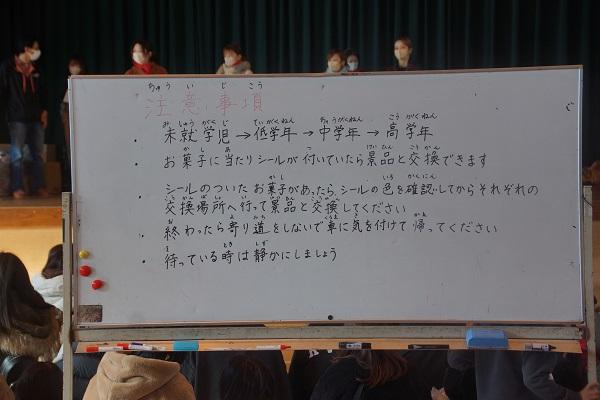 注意事項
・未就学児→低学年→中学年→高学年
・お菓子に当たりシールが付いていたら景品と交換できます
・シールのついたお菓子があったら、シールの色を確認してからそれぞれの
交換場所へ行って景品と交換してください
・終わったら寄り道をしないで車に気を付けて帰ってください
・待っている時は静かにしましょう